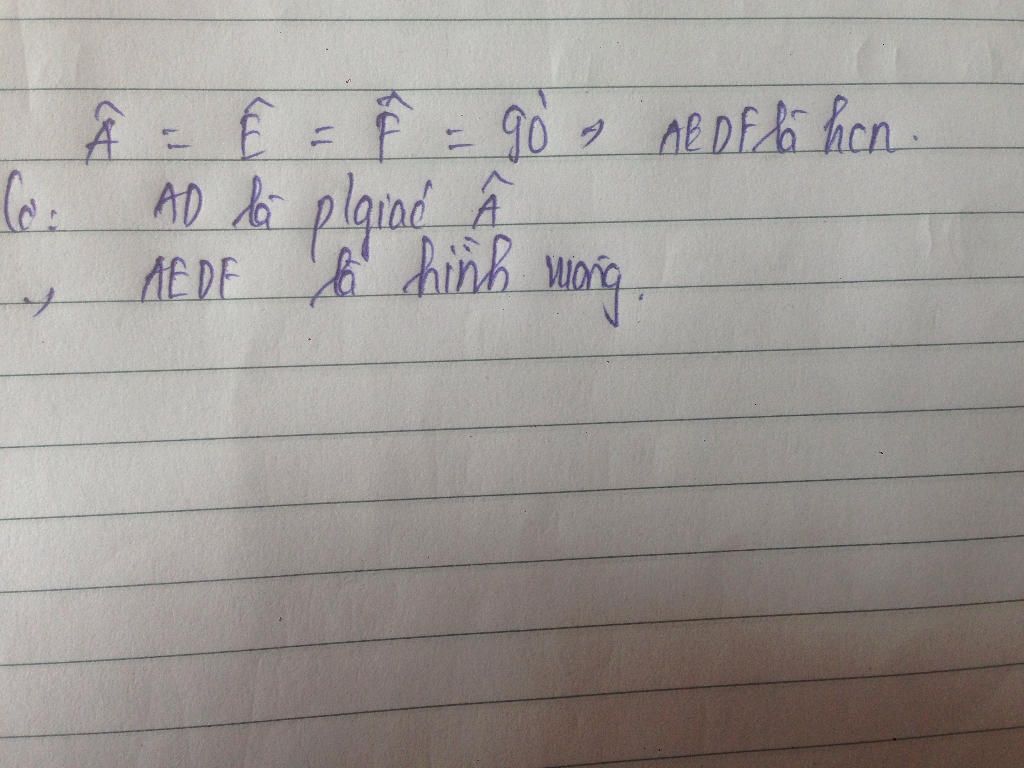 Â = Ê = F̂ = 90° => AEDF là hcn.
Có: AD là p/giác Â
=> AEDF là hình vuông.